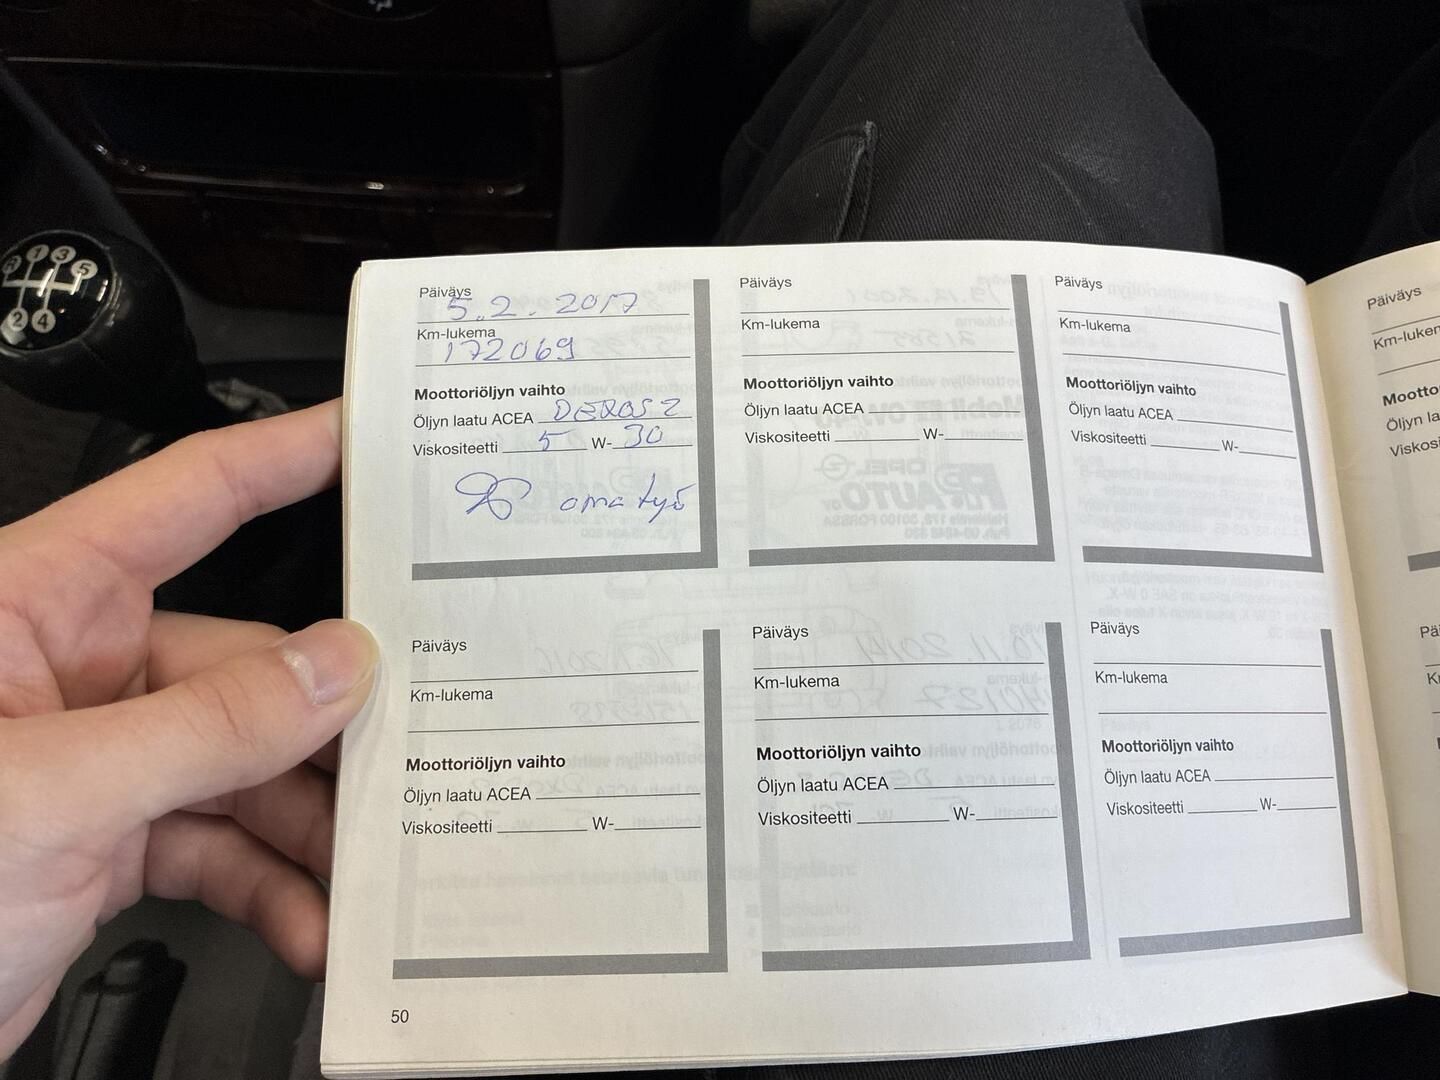 Päiväys
5.2.2017
Km-lukema
172069
Moottoriöljyn vaihto
Öljyn laatu ACEA DEXOS 2
Viskositeetti 5 W- 30
oma työ
Päiväys
Km-lukema
Moottoriöljyn vaihto
Öljyn laatu ACEA
Viskositeetti W-
Päiväys
Km-lukema
Moottoriöljyn vaihto
Öljyn laatu ACEA
Viskositeetti W-
Päiväys
Km-lukema
Moottoriöljyn vaihto
Öljyn laatu ACEA
Viskositeetti W-
Päiväys
Km-lukema
Moottoriöljyn vaihto
Öljyn laatu ACEA
Viskositeetti W-
Päiväys
Km-lukema
Moottoriöljyn vaihto
Öljyn laatu ACEA
Viskositeetti W-
50
Päiväys
R 1 3 5
2 4